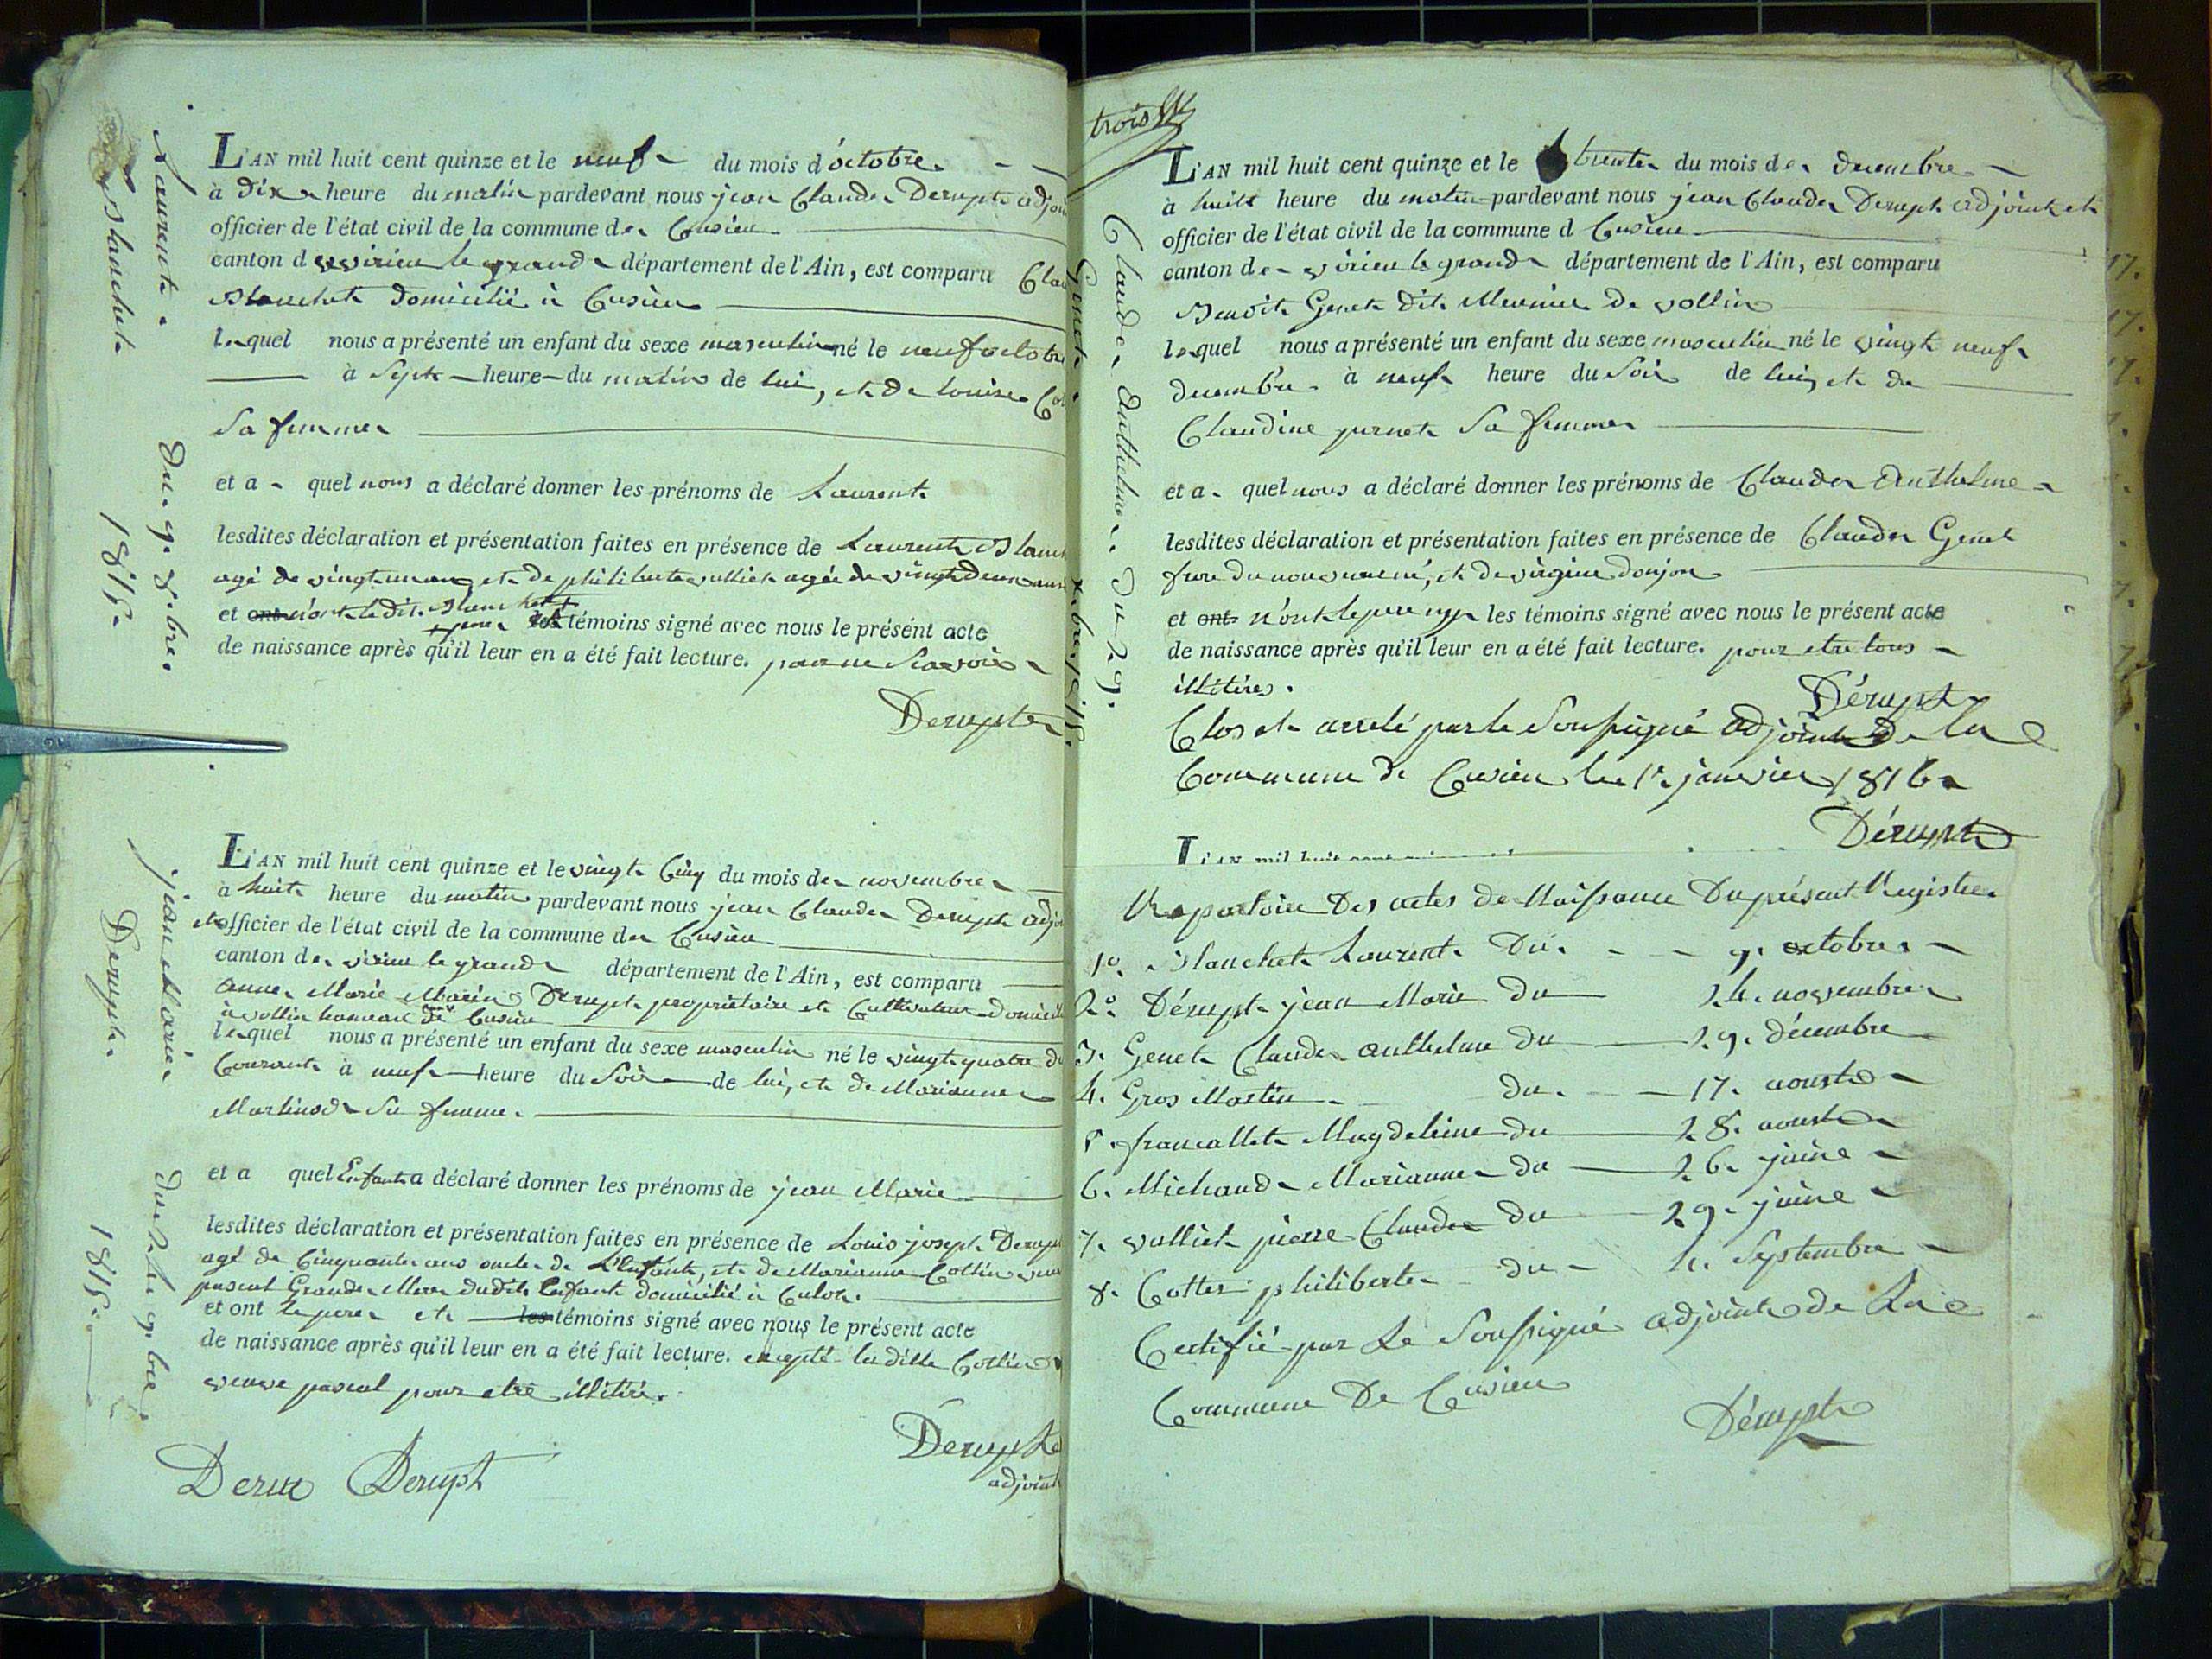 Laurent
Blanchet
du 9. 8.bre
1815.
L'AN mil huit cent quinze et le neuf du mois d'octobre
à dix heure du matin pardevant nous jean Claude Derupt adjoin
officier de l'état civil de la commune de Cusieu
canton d virieu le grand département de l'Ain, est comparu Clau
Blanchet domicilié à Cusieu
lequel nous a présenté un enfant du sexe masculin né le neuf octobre
à Sept heure du matin de lui, et de louise
Sa femme
et a quel nous a déclaré donner les prénoms de Laurent
lesdites déclaration et présentation faites en présence de Laurent Blanch
agé de vingt un ans et de philiberte vulliet agée de vingt deux ans
et ont n'ont le dit Blanchet
pere les témoins signé avec nous le présent acte
de naissance après qu'il leur en a été fait lecture. pour ne Scavoir
Derupt
jean Marie
Derupt
du 24. 9.bre
1815.
L'AN mil huit cent quinze et le vingt Cinq du mois de novembre
à huit heure du matin pardevant nous jean Claude Derupt adjo
et officier de l'état civil de la commune de Cusieu
canton de virieu le grand département de l'Ain, est comparu
Anne Marie Marin Derupt propriétaire et Cultivateur domicilié
à vollin hameau de Cusieu
lequel nous a présenté un enfant du sexe masculin né le vingt quatre du
Courant à neuf heure du Soir de lui, et de Marianne
Martinod Sa femme
et a quel Enfant a déclaré donner les prénoms de jean Marie
lesdites déclaration et présentation faites en présence de Louis joseph Derupt
agé de Cinquante ans oncle de L'Enfant, et de Marianne Cottin veuve
pascal Grande Mere dudit Enfant domicilié à Culoz.
et ont le pere et les témoins signé avec nous le présent acte
de naissance après qu'il leur en a été fait lecture. excepté ladite Cottin
veuve pascal pour etre illitéré.
Derupt
adjoint
Derupt
trois
Claude Anthelme. du 29.
Genet x.bre 1815.
L'AN mil huit cent quinze et le trente du mois de decembre
à huit heure du matin pardevant nous jean Claude Derupt adjoint et
officier de l'état civil de la commune d Cusieu
canton de virieu le grand département de l'Ain, est comparu
Benoit Genet dit Meunier de vollin
lequel nous a présenté un enfant du sexe masculin né le vingt neuf
decembre à neuf heure du Soir de lui, et de
Claudine pernet Sa femme
et a quel nous a déclaré donner les prénoms de Claude Anthelme
lesdites déclaration et présentation faites en présence de Claude Genet
frere du nouveau né, et de virginie donjon
et ont n'ont le pere ny les témoins signé avec nous le présent acte
de naissance après qu'il leur en a été fait lecture. pour etre tous
illitérés.
Dérupt
Clos et arreté par le Soussigné adjoint de la
Commune de Cusieu le 1er janvier 1816
Dérupt
L'AN mil huit cent
Repertoire Des actes de Naissance Du présent Registre
1º. Blanchet Laurent Du 9. octobre
2º. Dérupt jean Marie du 24. novembre
3. Genet Claude anthelme du 29. décembre
4. Gros Martin du 17. aoust
5. francallet Magdeleine du 28. aoust
6. Michaud Marianne du 26. juine
7. vulliet pierre Claude du 29. juine
8. Cottin philiberte du 4. Septembre
Certifié par Le Soussigné adjoint de La
Commune De Cusieu
Dérupt